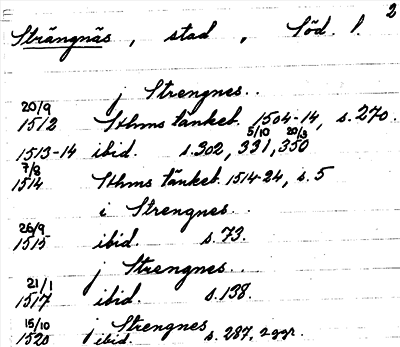 2
Strängnäs, stad, Söd. l.
j Strengnes..
20/9
1512 Sthms tänkeb. 1504-14, s. 270.
5/10 20/3
1513-14 ibid. s. 302, 331, 350
7/8
1514 Sthms tänkeb. 1514-24, s. 5
i Strengnes..
26/9
1515 ibid. s. 73.
j Strengnes..
21/1
1517 ibid. s. 138.
15/10 j Strengnes
1520 ibid. s. 287, 2 ggr.